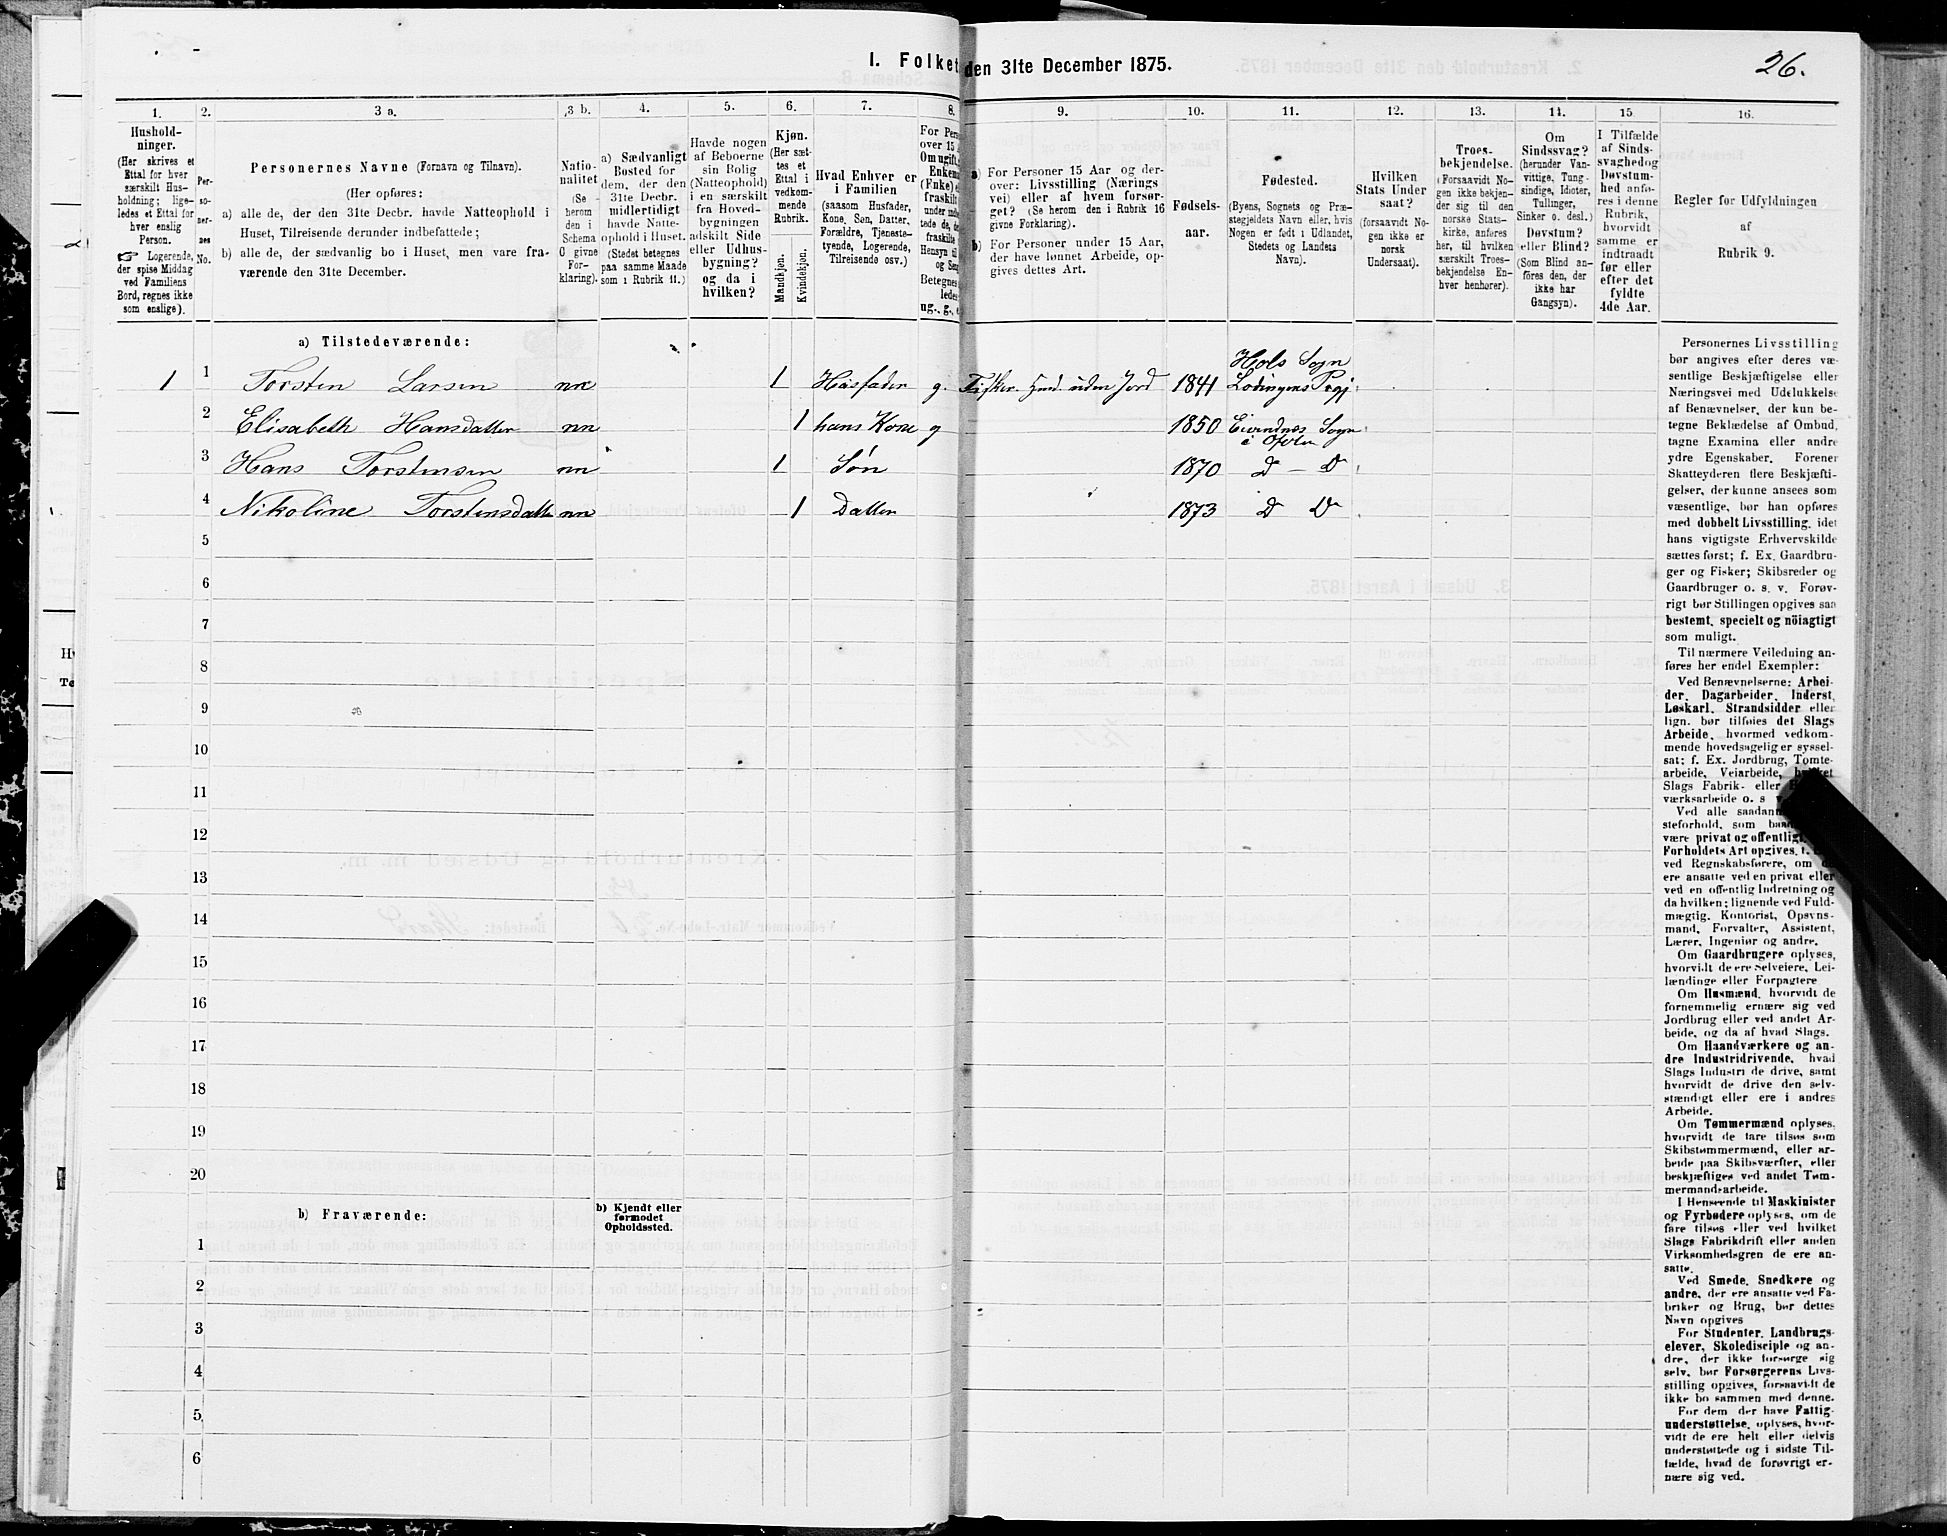 I. Folket
den 31te December 1875.
26.
1. 2. 3 a. 3 b. 4. 5. 6. 7. 8. 9. 10. 11. 12. 13. 14. 15. 16.
Hushold-
ninger.
(Her skrives et
Ettal for hver
særskilt Hus-
holdning; lige-
ledes et Ettal for
hver enslig
Person.
☞ Logerende,
der spise Middag
ved Familiens
Bord, regnes ikke
som enslige).
Per-
so-
ner-
nes
No.
Personernes Navne (Fornavn og Tilnavn).
(Her opføres:
a) alle de, der den 31te Decbr. havde Natteophold i
Huset, Tilreisende derunder indbefattede;
b) alle de, der sædvanlig bo i Huset, men vare fra-
værende den 31te December.
Natio-
nalitet
(Se
herom
den i
Schema
0 givne
For-
klaring).
a) Sædvanligt
Bosted for
dem, der den
31te Decbr.
midlertidigt
havde Natte-
ophold i Huset.
(Stedet betegnes
paa samme Maade
som i Rubrik 11.)
Havde nogen
af Beboerne
sin Bolig
(Natteophold)
i en særskilt
fra Hoved-
bygningen
adskilt Side
eller Udhus-
bygning?
og da i
hvilken?
Kjøn.
(Her sæt-
tes et
Ettal i
vedkom-
mende
Rubrik.
Mandkjøn.
Kvindekjøn.
Hvad Enhver er
i Familien
(saasom Husfader,
Kone, Søn, Datter,
Forældre, Tjeneste-
tyende, Logerende,
Tilreisende osv.)
For Pers
over 15 A
Om ugift,
Enkema
(Enke) e
fraskilt
under indb
tede de, d
fraskilte
Hensyn til
og Sen
Betegnes
ledes
ug., g., e
a) For Personer 15 Aar og der-
over: Livsstilling (Nærings
vei) eller af hvem forsør-
get? (Se herom den i Rubrik 16
givne Forklaring).
b) For Personer under 15 Aar,
der have lønnet Arbeide, op-
gives dettes Art.
Fødsels-
aar.
Fødested.
(Byens, Sognets og Præ-
stegjeldets Navn eller, hvis
Nogen er født i Udlandet,
Stedets og Landets
Navn).
Hvilken
Stats Under
saat?
(forsaavidt No-
gen ikke er
norsk
Undersaat).
Troes-
bekjendelse.
(Forsaavidt No-
gen ikke bekjen-
der sig til den
norske Stats-
kirke, anføres
her, til hvilken
særskilt Troes-
bekjendelse En-
hver henhører).
Om
Sindssvag?
(herunder Van-
vittige, Tung-
sindige, Idioter,
Tullinger,
Sinker o. desl.)
Døvstum?
eller Blind?
(Som Blind an-
føres den, der
ikke har
Gangsyn).
I Tilfælde
af Sinds-
svaghed og
Døvstum-
hed anfø-
res i denne
Rubrik,
hvorvidt
samme er
indtraadt
før eller
efter det
fyldte
4de Aar.
Regler for Udfyldningen
af
Rubrik 9.
a) Tilstedeværende:
Hols Sogn
1 1 Torsten Larsen nn 1 Husfader g. Fisker. Hmd. uden Jord 1841 Lødingens Prgj.
2 Elisabeth Hansdatter nn 1 hans Kone g 1850 Evindnes Sogn
i Ofoten
3 Hans Torstensen nn 1 Søn 1870 D – D
4 Nikoline Torstensdatter nn 1 Datter 1873 D D
5
6
7
8
9
10
11
12
13
14
15
16
17
18
19
20
b) Fraværende:
b) Kjendt eller
formodet
Opholdssted.
1
2
3
4
5
6
Personernes Livsstilling
bør angives efter deres væ-
sentlige Beskjæftigelse eller
Næringsvei med Udelukkelse
af Benævnelser, der kun be-
tegne Beklædelse af Ombud,
tagne Examina eller andre
ydre Egenskaber. Forener
Skatteyderen flere Beskjæfti-
gelser, der kunne ansees som
væsentlige, bør han opføres
med dobbelt Livsstilling, idet
hans vigtigste Erhvervskilde
sættes først; f. Ex. Gaardbru-
ger og Fisker; Skibsreder og
Gaardbruger o. s. v. Forøv-
rigt bør Stillingen opgives saa
bestemt, specielt og nöiagtigt
som muligt.
Til nærmere Veiledning an-
føres her endel Exempler:
Ved Benævnelserne: Arbei-
der, Dagarbeider, Inderst,
Løskarl, Strandsidder eller
lign. bør tilføies det Slags
Arbeide, hvormed vedkom-
mende hovedsagelig er syssel-
sat; f. Ex. Jordbrug, Tomte-
arbeide, Veiarbeide, hvilket
Slags Fabrik- eller
værksarbeide o. s
Ved alle saadann
steforhold, som baade
være privat og offentligt,
Forholdets Art opgives,
ved Regnskabsførere, om de
ere ansatte ved en privat eller
ved en offentlig Indretning og
da hvilken; lignende ved Fuld-
mægtig, Kontorist, Opsyns-
mand, Forvalter, Assistent,
Lærer, Ingeniør og andre.
Om Gaardbrugere oplyses,
hvorvidt de ere Selveiere, Lei-
lændinge eller Forpagtere
Om Husmænd, hvorvidt de
fornemmelig ernære sig ved
Jordbrug eller ved andet Ar-
beide, og da af hvad Slags.
Om Haandværkere og an-
dre Industridrivende, hvad
Slags Industri de drive, samt
hvorvidt de drive den selv-
stændigt eller ere i andres
Arbeide.
Om Tømmermænd oplyses,
hvorvidt de fare tilsøs som
Skibstømmermænd, eller ar-
beide paa Skibsværfter, eller
beskjæftiges ved andet Tøm-
mermandsarbeide.
I Henseende til Maskinister
og Fyrbødere oplyses, om de
fare tilsøs eller ved hvilket
Slags Fabrikdrift eller anden
Virksomhedsgren de ere an-
satte.
Ved Smede, Snedkere og
andre, der ere ansatte ved Fa-
briker og Brug, bør dettes
Navn opgives
For Studenter, Landbrugs-
elever, Skoledisciple og an-
dre, der ikke forsørge sig
selv, bør Forsørgerens Livs-
stilling opgives, forsaavidt de
ikke bo sammen med denne.
For dem der have Fattig-
understøttelse, oplyses, hvor-
vidt de ere helt eller delvis
understøttede og i sidste Til-
fælde, hvad de forøvrigt er-
nære sig ved.